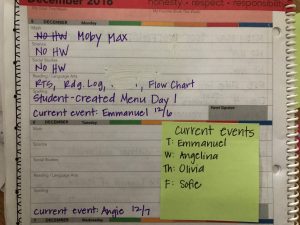 December 2016
honesty • respect • responsibility
DECEMBER Monday
Math
No HW Moby Max
Science
No HW
Social Studies
No HW
Reading / Language Arts
RTS, Rdg. Log, , Flow Chart
Spelling
Student-Created Menu Day 1
Current event: Emmanuel 12/6
DECEMBER Tuesday
Math
Science
Social Studies
Reading / Language Arts
Spelling
Current event: Angie 12/7
Current events
T: Emmanuel
W: Angelina
Th: Olivia
F: Sofie